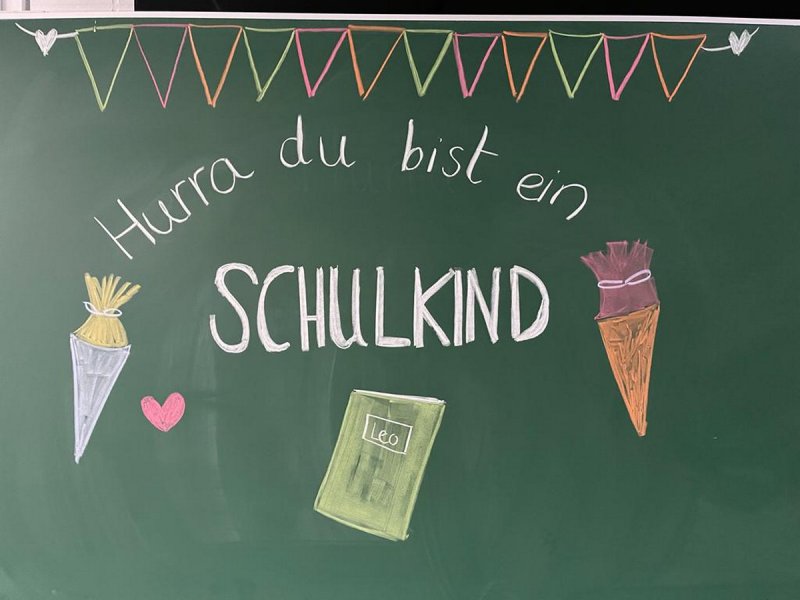 Hurra du bist ein
SCHULKIND
Leo